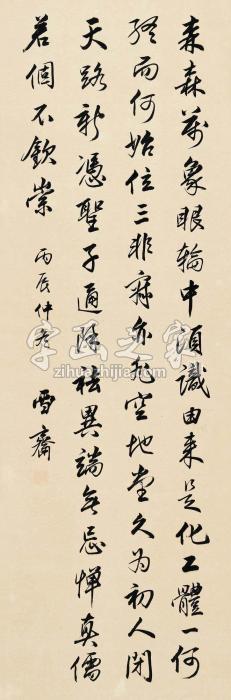 森森萬象眼輪中須識由来是化工體一何
終而何始位三非寂亦非空地堂久為初人閉
天路新憑聖子通除祛異端無忌憚真儒
若個不欽崇 丙辰仲冬 雪齋
字画之家
zihuazhijia.com